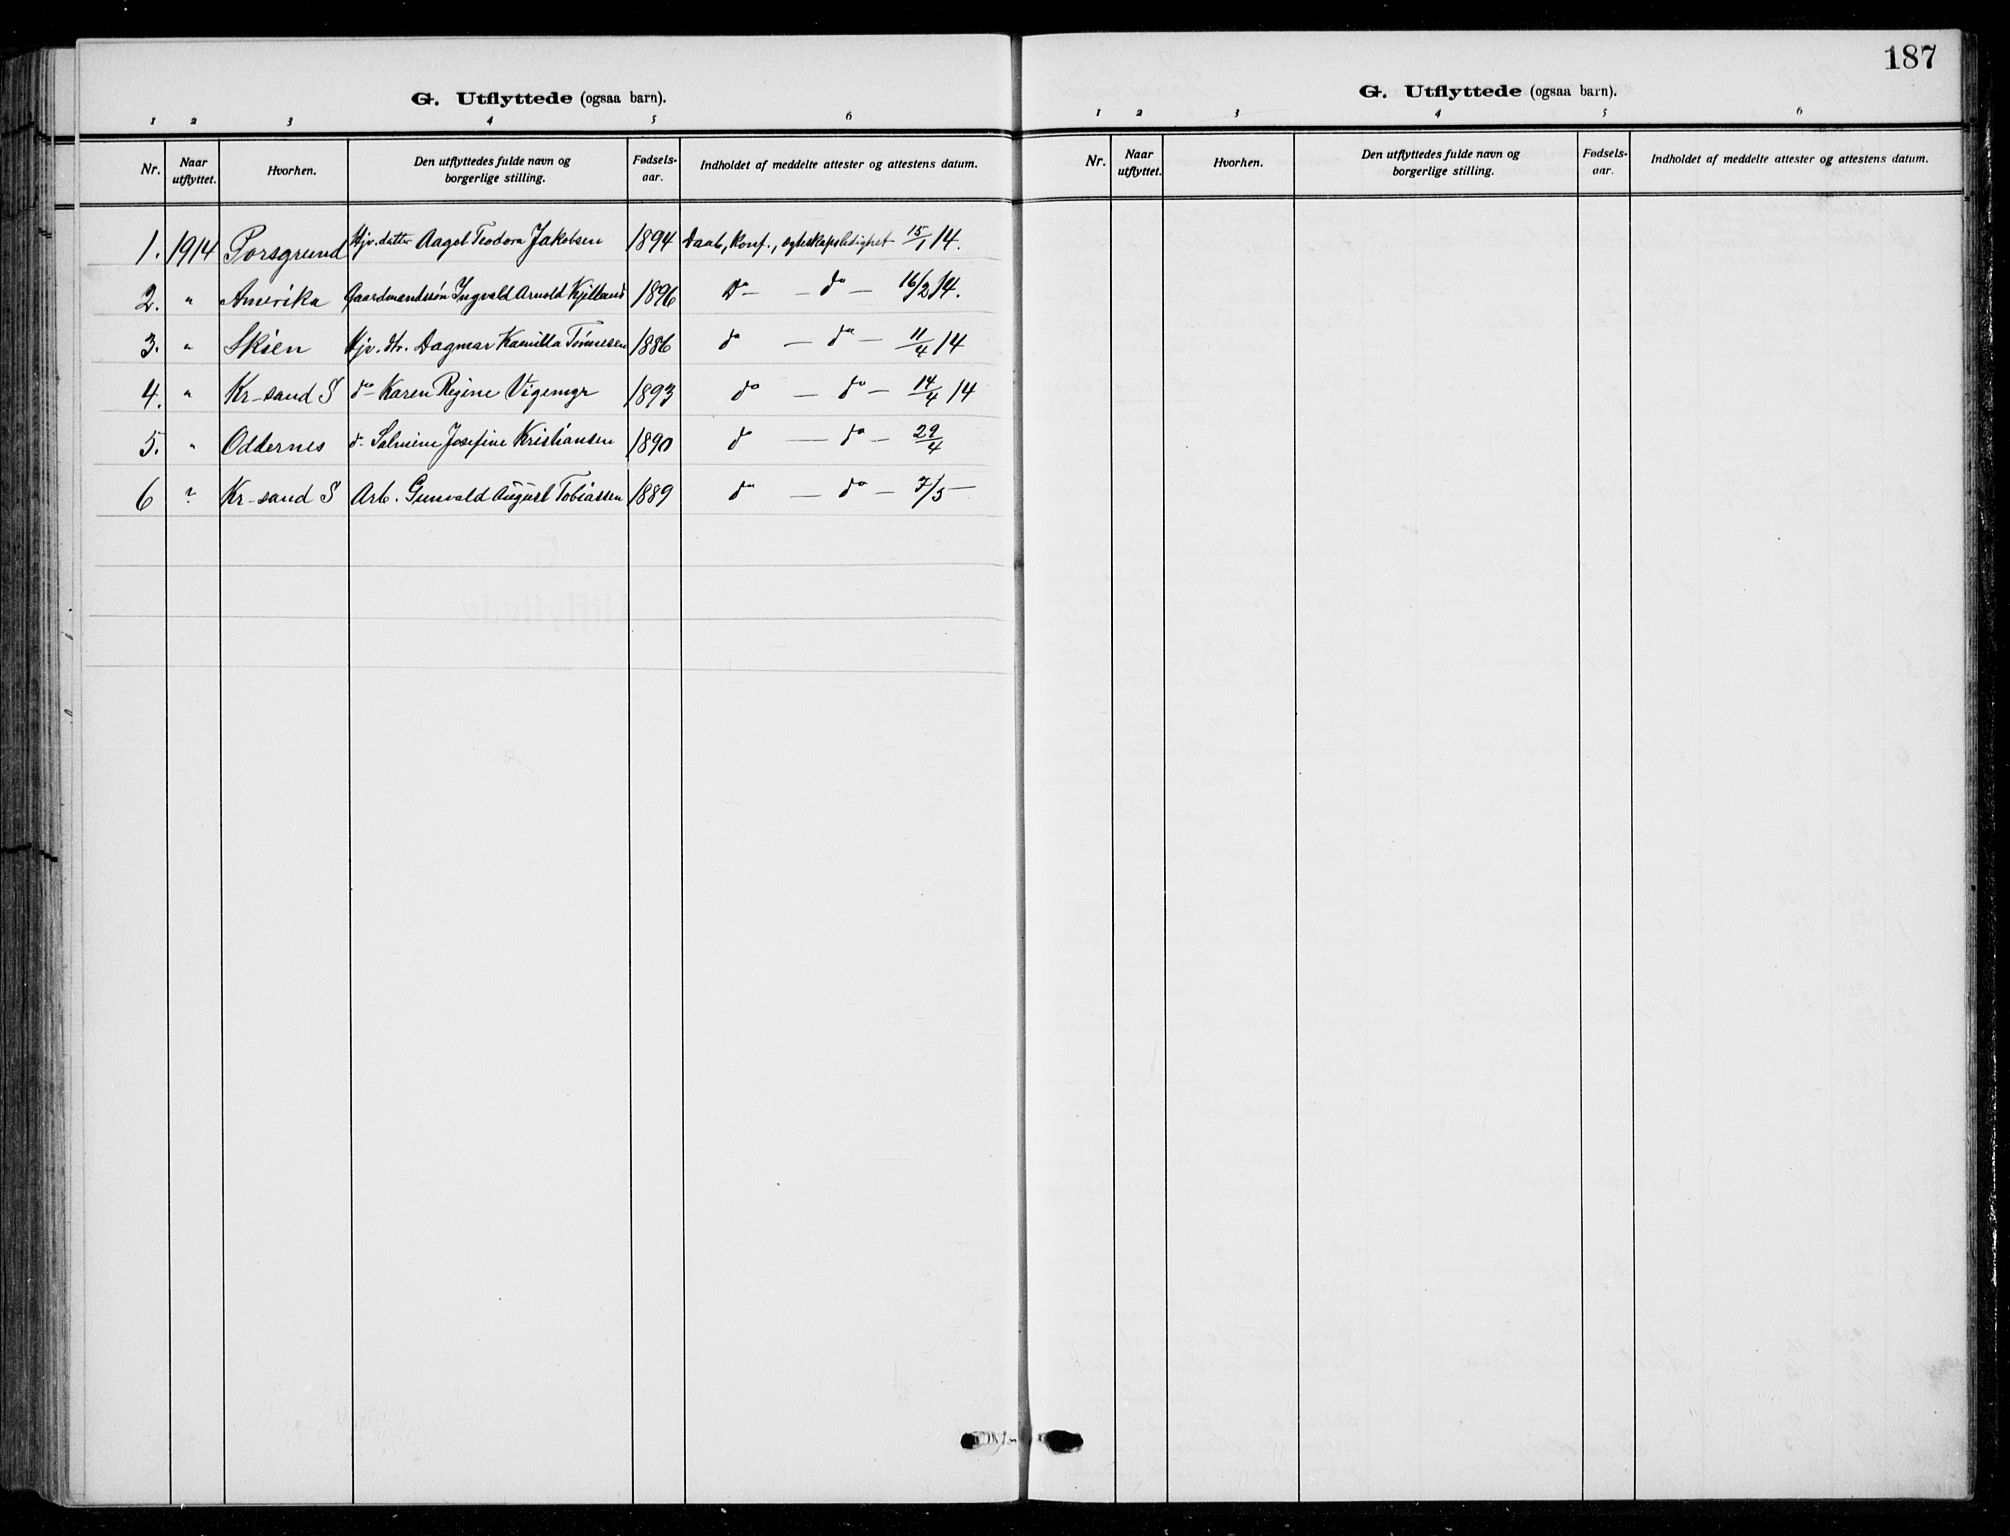 187
G. Utflyttede (ogsaa barn).
1 2 3 4 5 6
Nr. Naar utflyttet. Hvorhen. Den utflyttedes fulde navn og borgerlige stilling. Fødsels-aar. Indholdet af meddelte attester og attestens datum.
1. 1914 Porsgrund Hjv. datter Aagot Teodora Jakobsen 1894 Daab, Konf., egteskapsledighet 15/1 14.
2. " Amerika Gaardmandssøn Ingvald Arnold Kjilland 1896 Do — do — 16/2 14.
3. " Skien Hjv. dtr. Dagmar Kamilla Tønnesen 1886 do — do — 11/4 14
4. " Kr-sand S do Karen Regine Vigemyr 1893 do — do — 14/4 14
5. " Oddernes do Josefine Kristiansen 1890 do — do — 29/4
6 " Kr-sand S Arb. Gunvald August Tobiassen 1889 do — do — 7/5 —
G. Utflyttede (ogsaa barn).
1 2 3 4 5 6
Nr. Naar utflyttet. Hvorhen. Den utflyttedes fulde navn og borgerlige stilling. Fødsels-aar. Indholdet af meddelte attester og attestens datum.